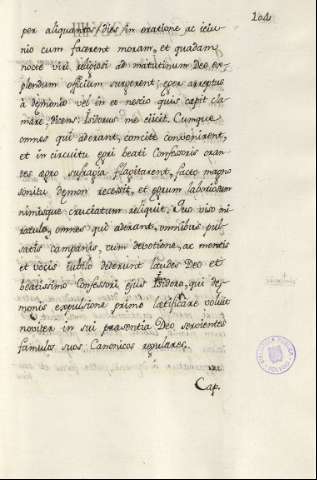 104
per aliquantos dies in oratione ac ieiu-
nio cum facerent moram, et quadam
nocte viri religiosi ad matutinum Deo ex-
plendum officium surgerent; eger arreptus
a dęmonio vel in et nescio quis capit cla-
mare, dicens: Isidorus me eiicit. Cumque
omnes qui aderant, concite convenirent,
et in circuitu egri beati Confessoris oran-
tes agro sufragia flagitarent, facto magno
sonitu dęmon recessit, et egrum laboriosum
nimisque cruciatum reliquit. Quo viso mi-
raculo, omnes qui aderant, omnibus pul-
satis campanis, cum devotione, ac mentis
et vocis iubilo dederunt laudes Deo et
beatissimo Confessori eius Isidoro, qui dę-
monis expulsione primo lætificare voluit
noviter in sui præsentia Deo servientes
famulos suos Canonicos regulares.
Cap.